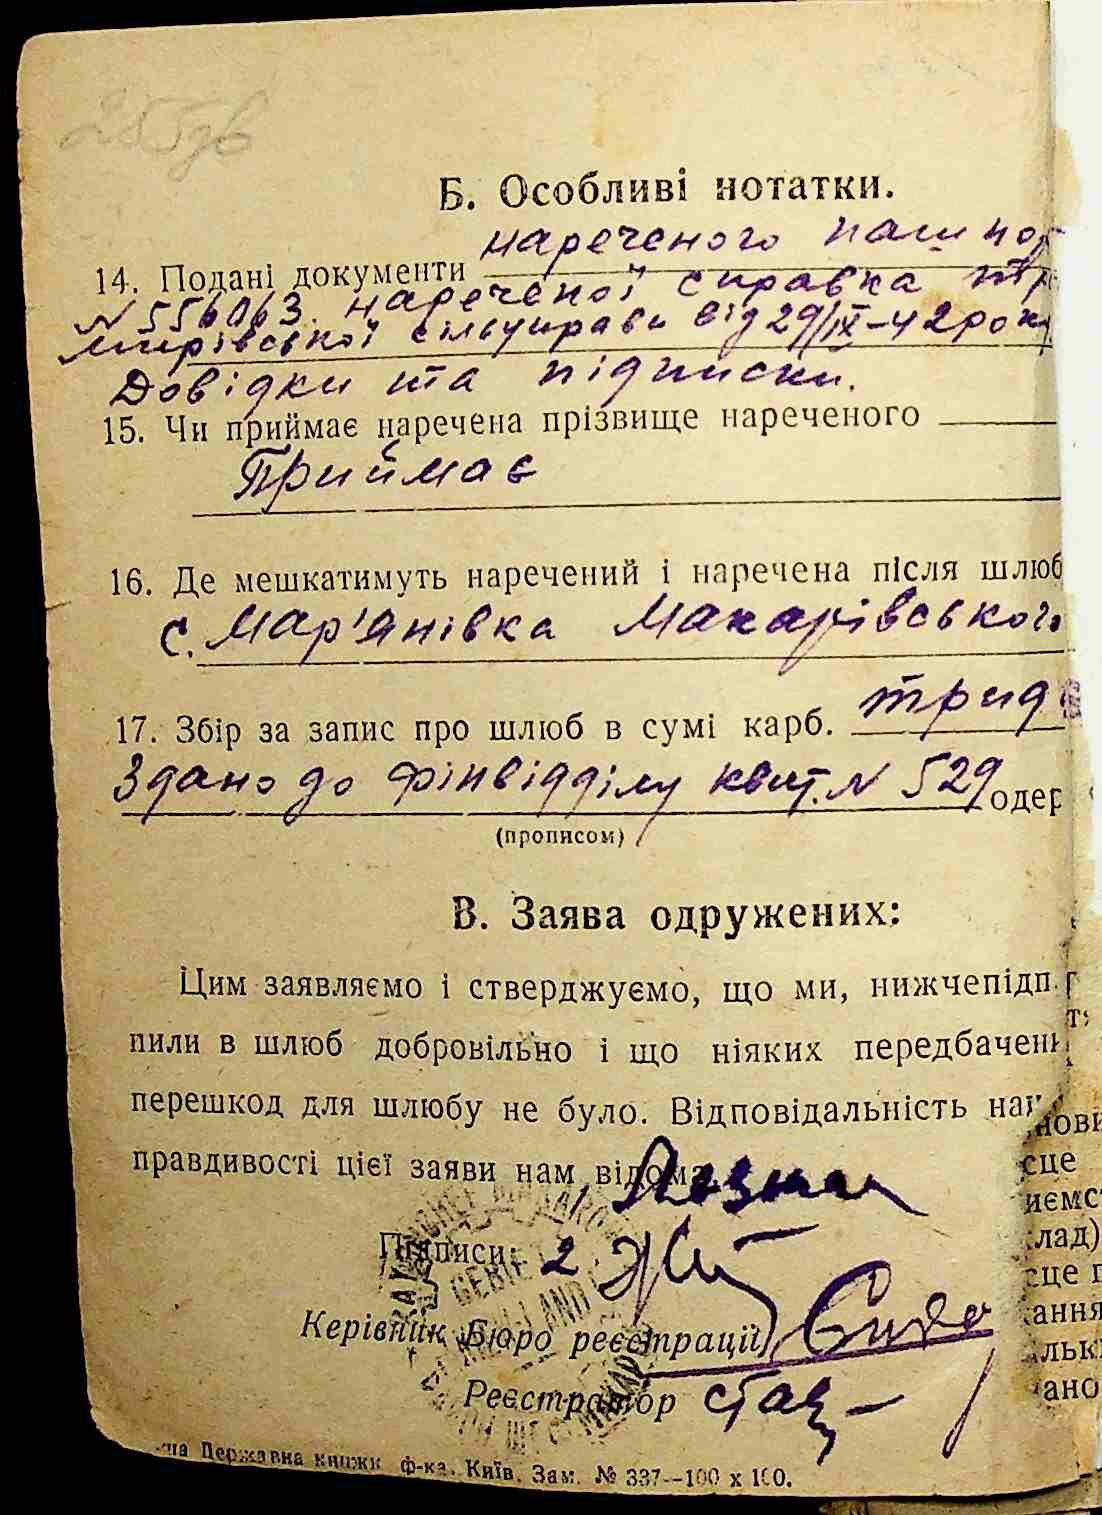 255зв
Б. Особливі нотатки.
14. Подані документи нареченого паспор
N 556063. нареченої справка
мирівської сільуправи від 29/IX-42 року
Довідки та підписки.
15. Чи приймає наречена прізвище нареченого
Приймає
16. Де мешкатимуть наречений і наречена після шлюб
с. Мар'янівка Макарівського
17. Збір за запис про шлюб в сумі карб. трид
Здано до фінвідділу квит. N 529 одер
(прописом)
В. Заява одружених:
Цим заявляємо і стверджуємо, що ми, нижчепідп
пили в шлюб добровільно і що ніяких передбачен
перешкод для шлюбу не було. Відповідальність
правдивості цієї заяви нам відома.
Підписи:
2
Керівник Бюро реєстрації
Реєстратор
Державна книжк. ф-ка. Київ. Зам. № 337—100 х 100.
сце
лад)
ання